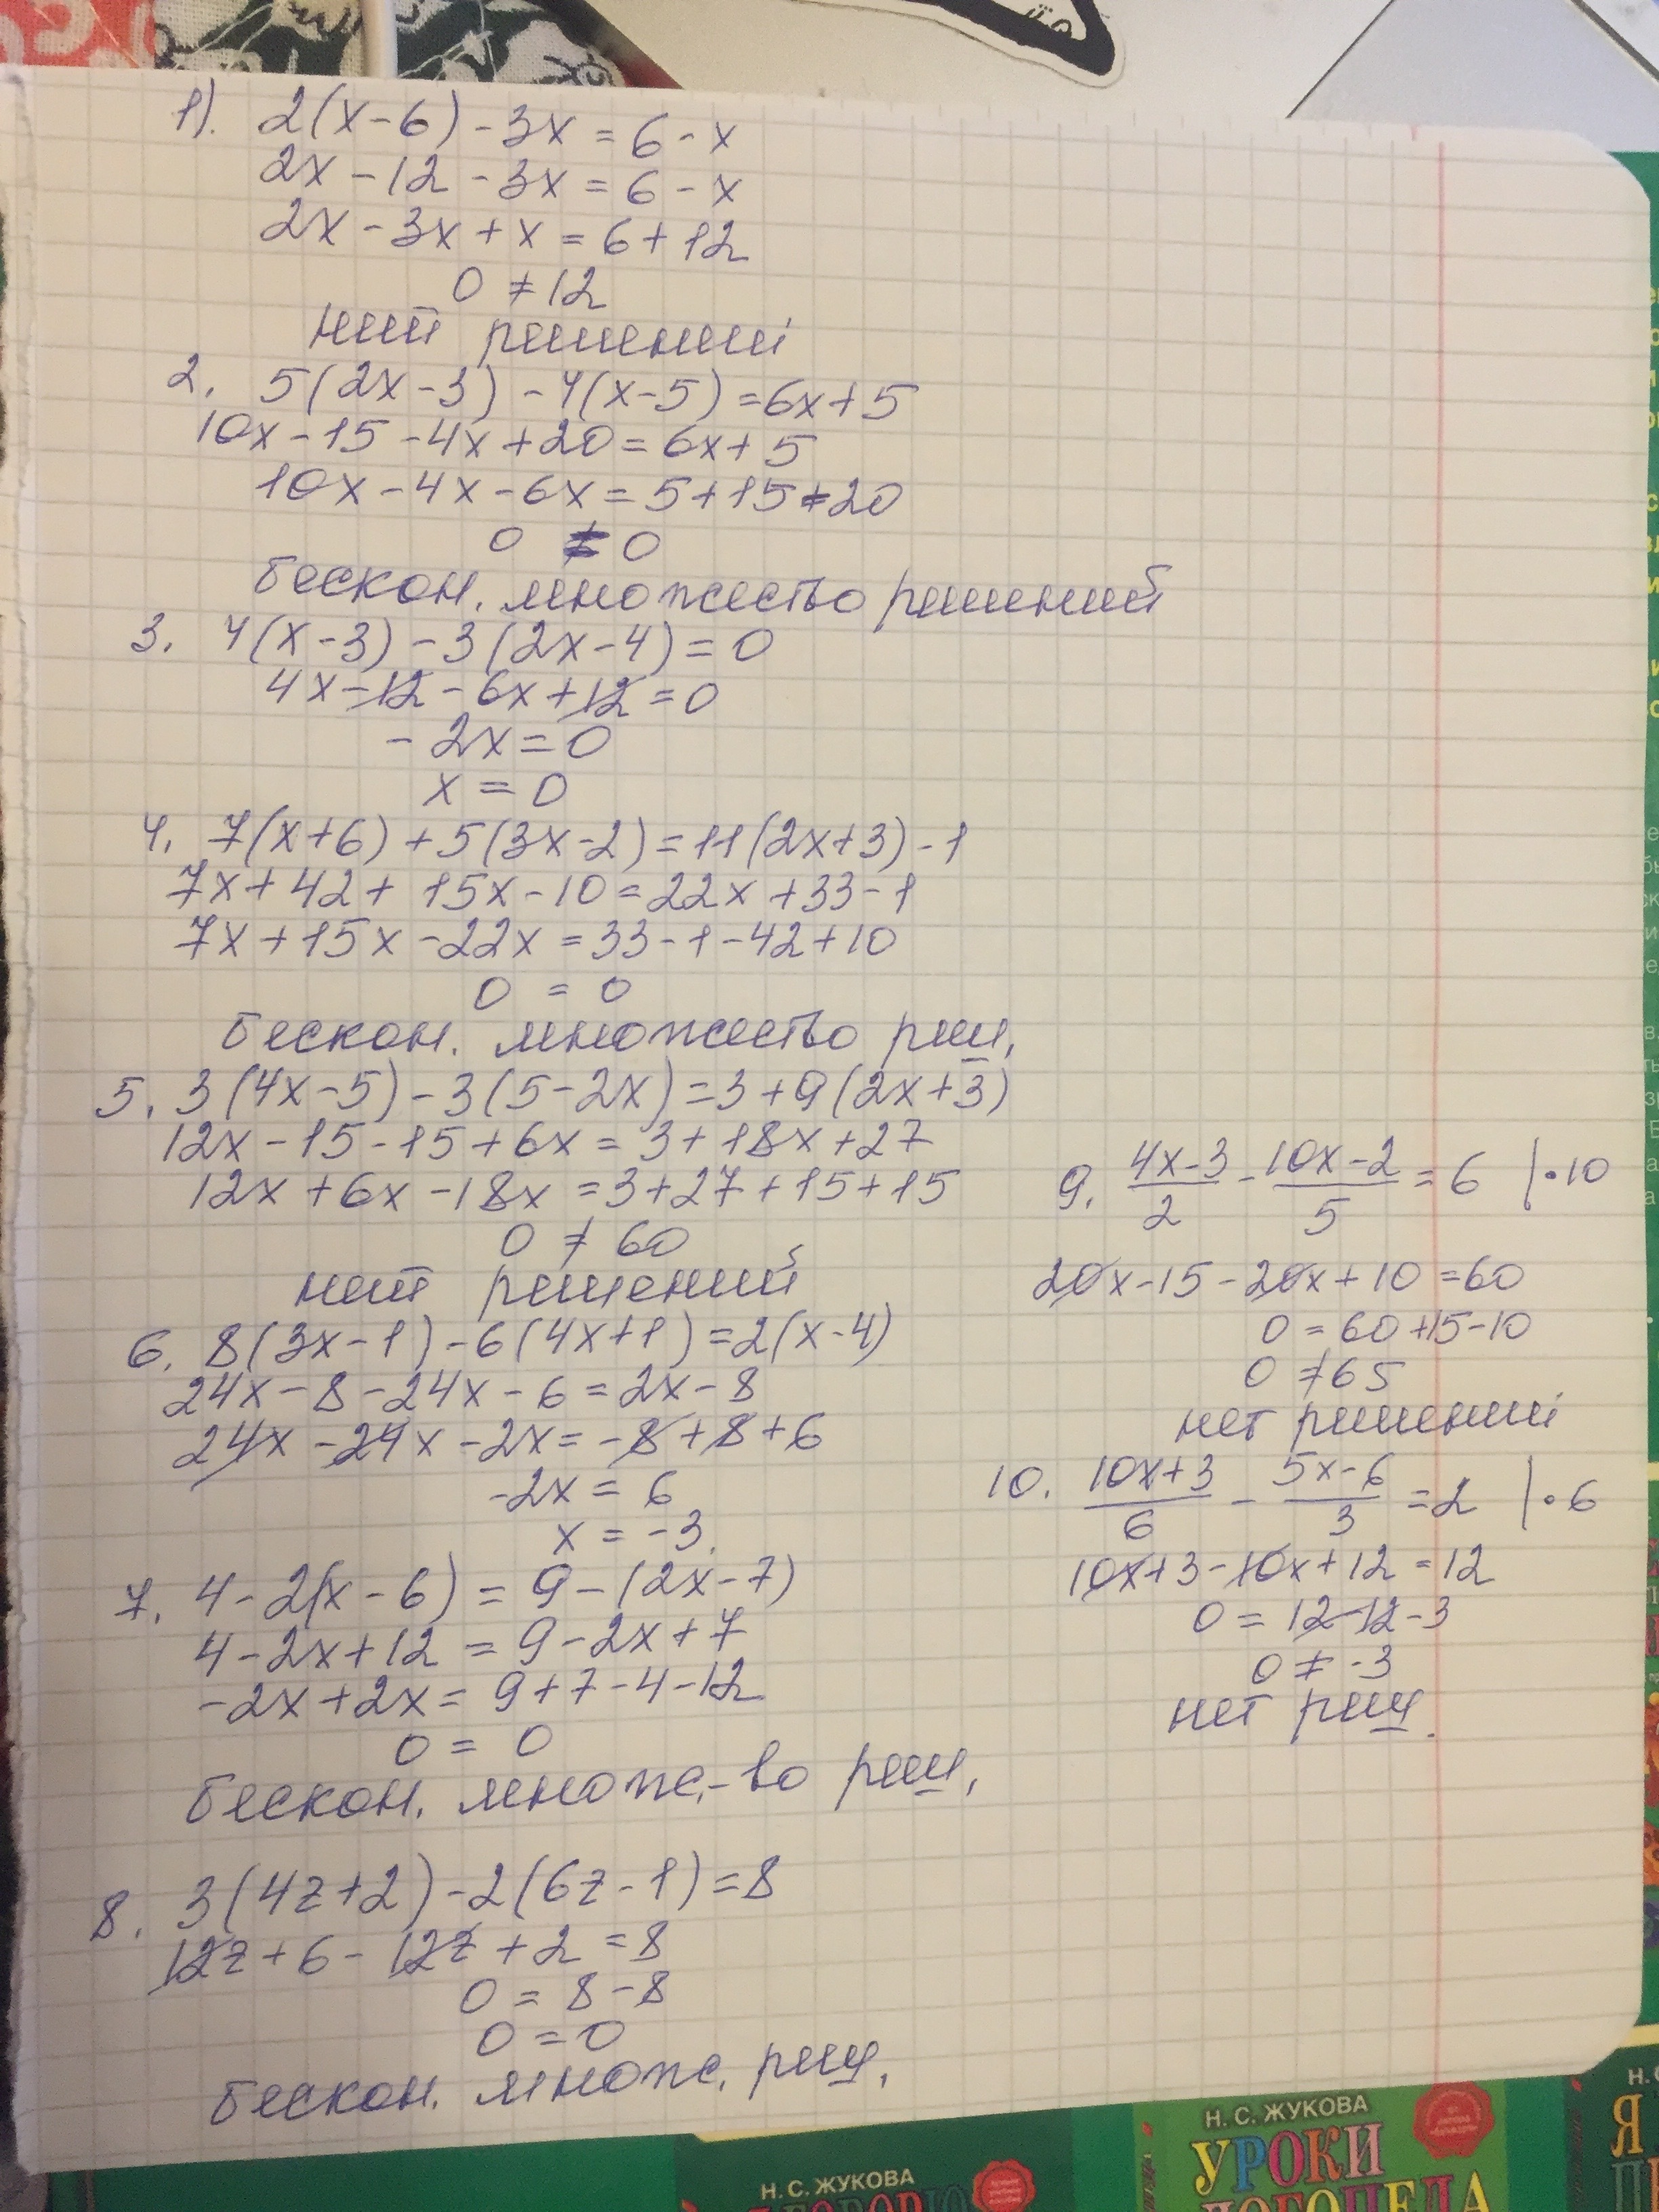 1). 2(x-6)-3x=6-x
2x-12-3x=6-x
2x-3x+x=6+12
0≠12
нет решений
2. 5(2x-3)-4(x-5)=6x+5
10x-15-4x+20=6x+5
10x-4x-6x=5+15-20
0 = 0
бескон. множество решений
3. 4(x-3)-3(2x-4)=0
4x-12-6x+12=0
-2x=0
x=0
4. 7(x+6)+5(3x-2)=11(2x+3)-1
7x+42+15x-10=22x+33-1
7x+15x-22x=33-1-42+10
0 = 0
бескон. множество реш.
5. 3(4x-5)-3(5-2x)=3+9(2x+3)
12x-15-15+6x=3+18x+27
12x+6x-18x=3+27+15+15
0 ≠ 60
нет решений
6. 8(3x-1)-6(4x+1)=2(x-4)
24x-8-24x-6=2x-8
24x-24x-2x=-8+8+6
-2x=6
x=-3
7. 4-2(x-6)=9-(2x-7)
4-2x+12=9-2x+7
-2x+2x=9+7-4-12
0=0
бескон. множ.-во реш.
8. 3(4z+2)-2(6z-1)=8
12z+6-12z+2=8
0=8-8
0=0
бескон. множ. реш.
9. (4x-3)/2 - (10x-2)/5 = 6 |•10
20x-15-20x+10=60
0=60+15-10
0≠65
нет решений
10. (10x+3)/6 - (5x-6)/3 = 2 |•6
10x+3-10x+12=12
0=12-12-3
0≠-3
нет реш.
Н. С. ЖУКОВА
УРОКИ
ЛОГОПЕДА
Н. С. ЖУКОВА
Я